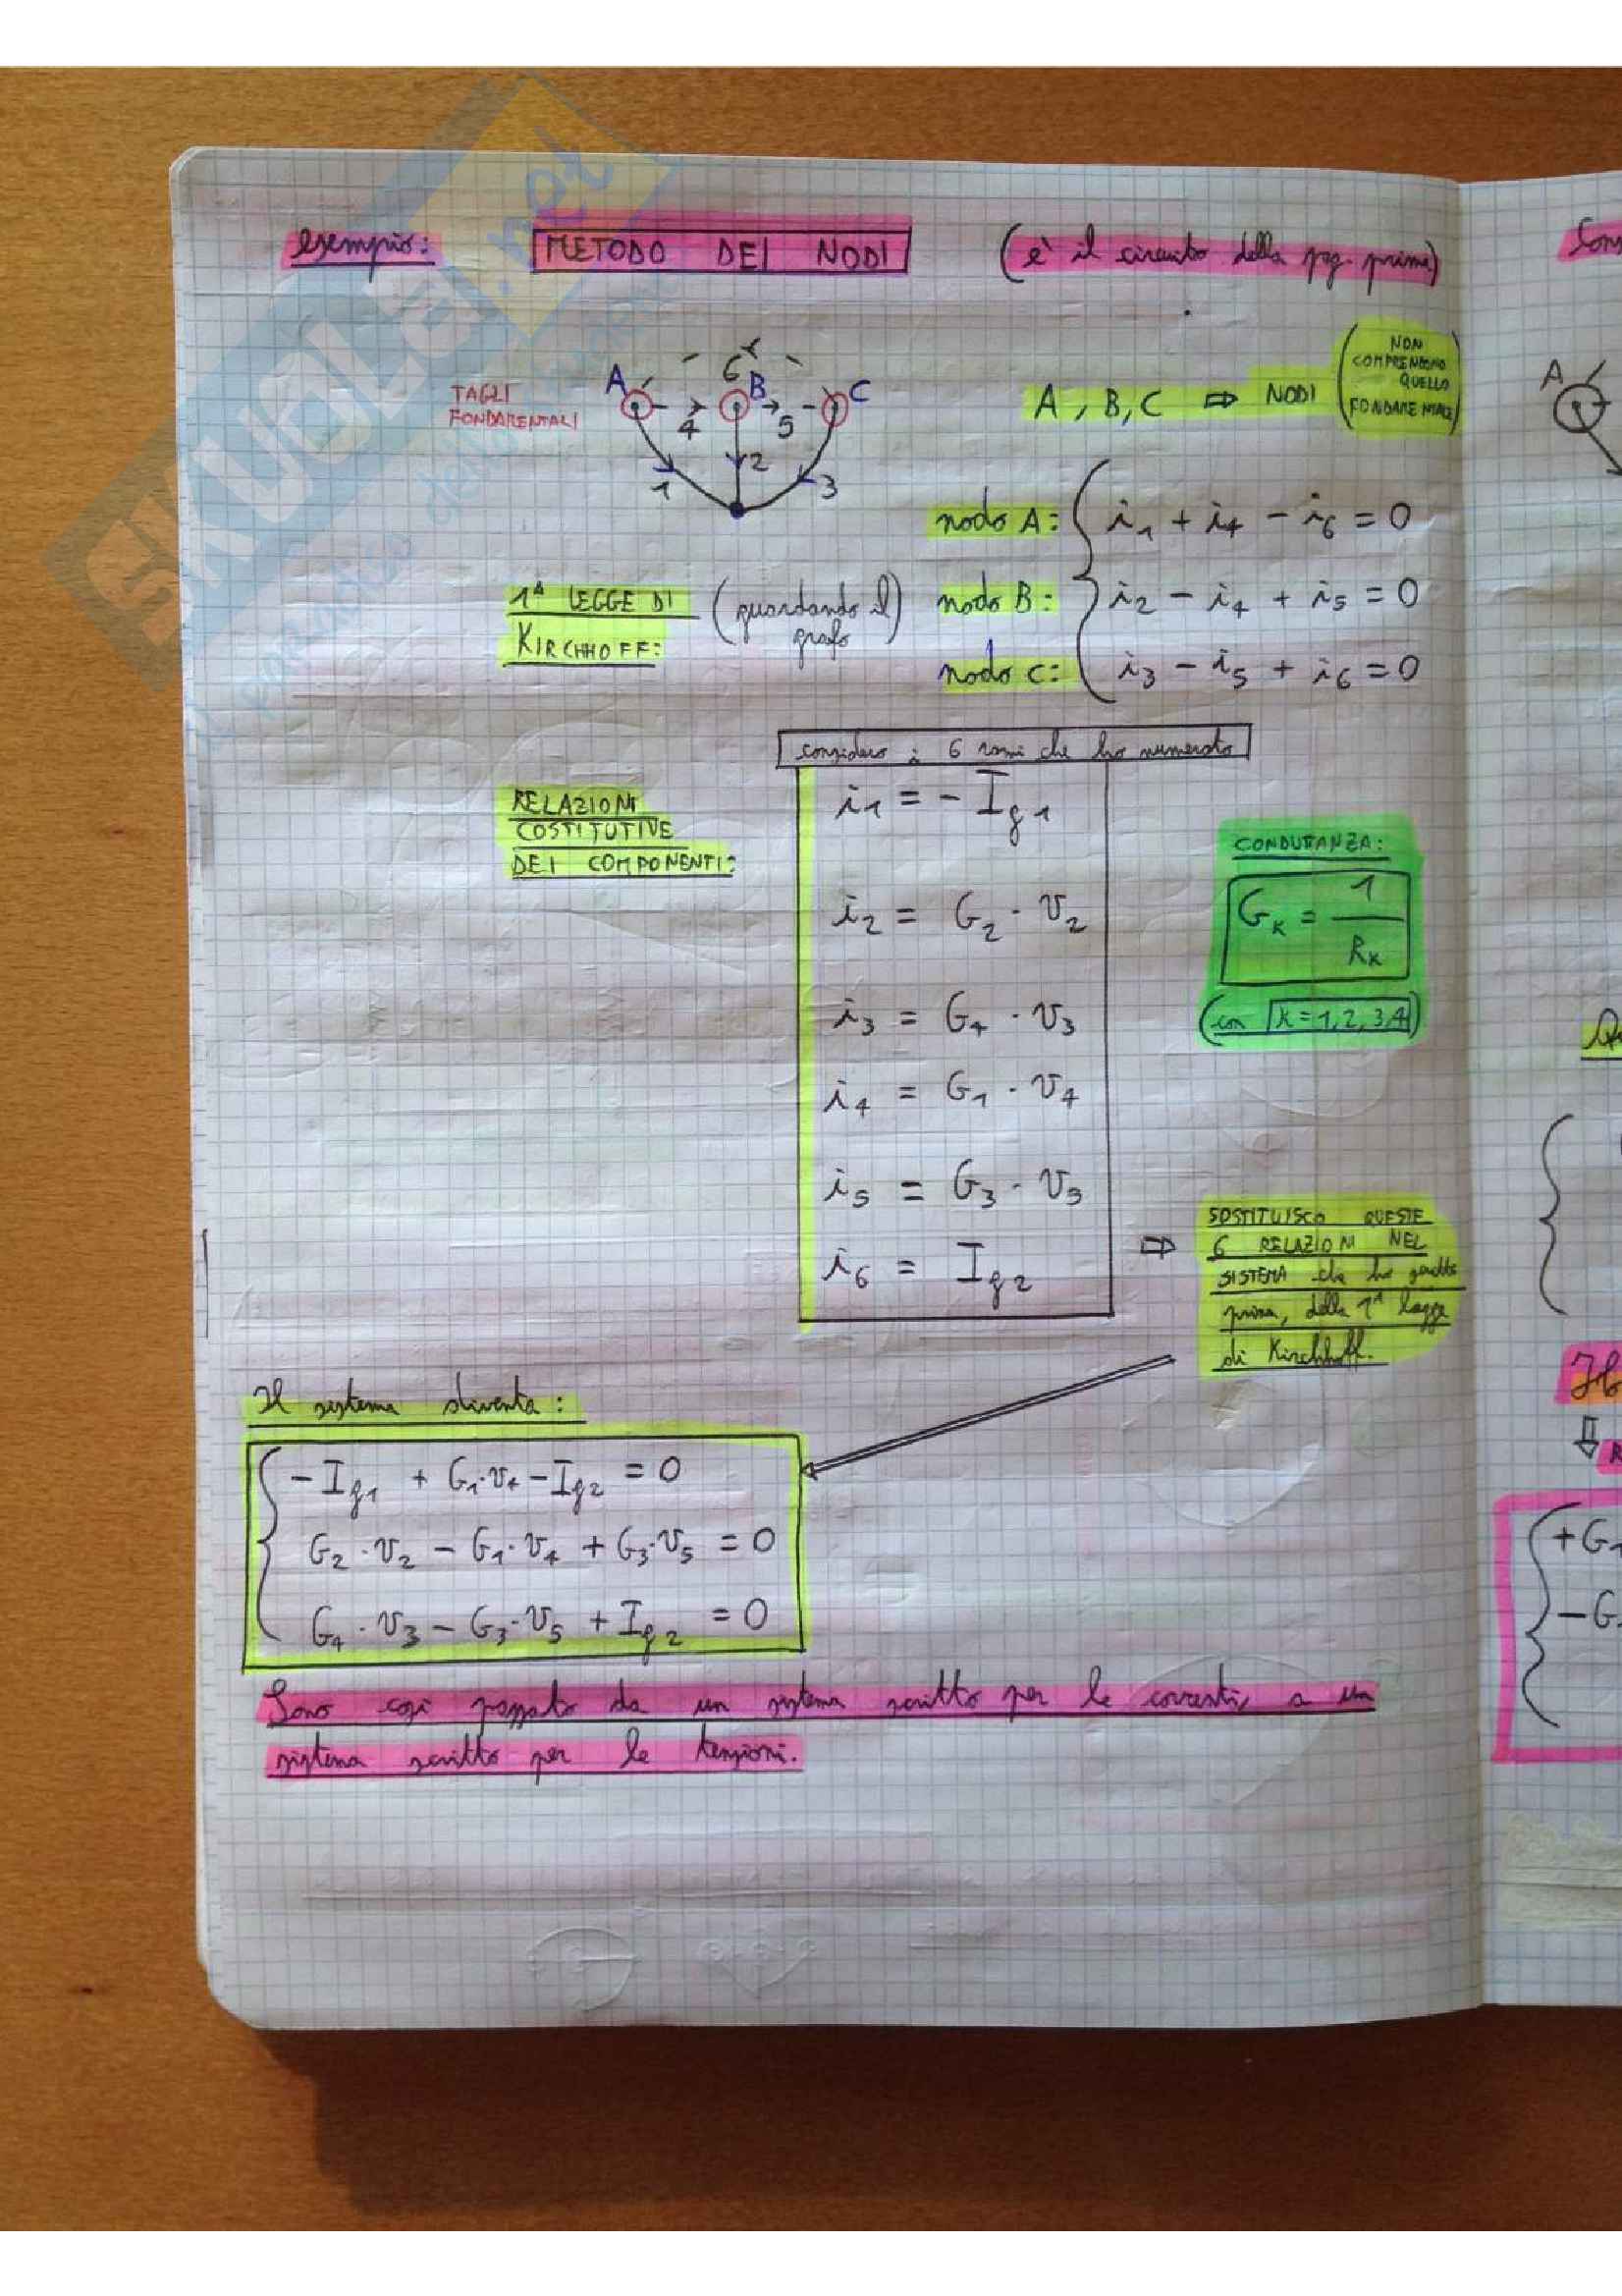 SKUOLA.net
esempio: METODO DEI NODI (è il circuito della pag. prima)
TAGLI
FONDAMENTALI
A B C
6
4 5
1 2 3
A, B, C ⇒ NODI (NON
COMPRENDONO
QUELLO
FONDAMENTALE)
1ª LEGGE DI
KIRCHHOFF: (guardando il
grafo)
nodo A: i₁ + i₄ - i₆ = 0
nodo B: i₂ - i₄ + i₅ = 0
nodo C: i₃ - i₅ + i₆ = 0
considero i 6 rami che ho numerato
RELAZIONI
COSTITUTIVE
DEI COMPONENTI:
i₁ = - Ig1
i₂ = G₂ · V₂
i₃ = G₄ · V₃
i₄ = G₁ · V₄
i₅ = G₃ · V₅
i₆ = Ig2
CONDUTANZA:
Gk = 1/Rk
(con k = 1, 2, 3, 4)
⇒ SOSTITUISCO QUESTE
6 RELAZIONI NEL
SISTEMA che ho scritto
prima, della 1ª legge
di Kirchhoff.
Il sistema diventa:
-Ig1 + G₁·V₄ - Ig2 = 0
G₂·V₂ - G₁·V₄ + G₃·V₅ = 0
G₄·V₃ - G₃·V₅ + Ig2 = 0
Sono così passato da un sistema scritto per le correnti, a un
sistema scritto per le tensioni.
A
+G₁
-G